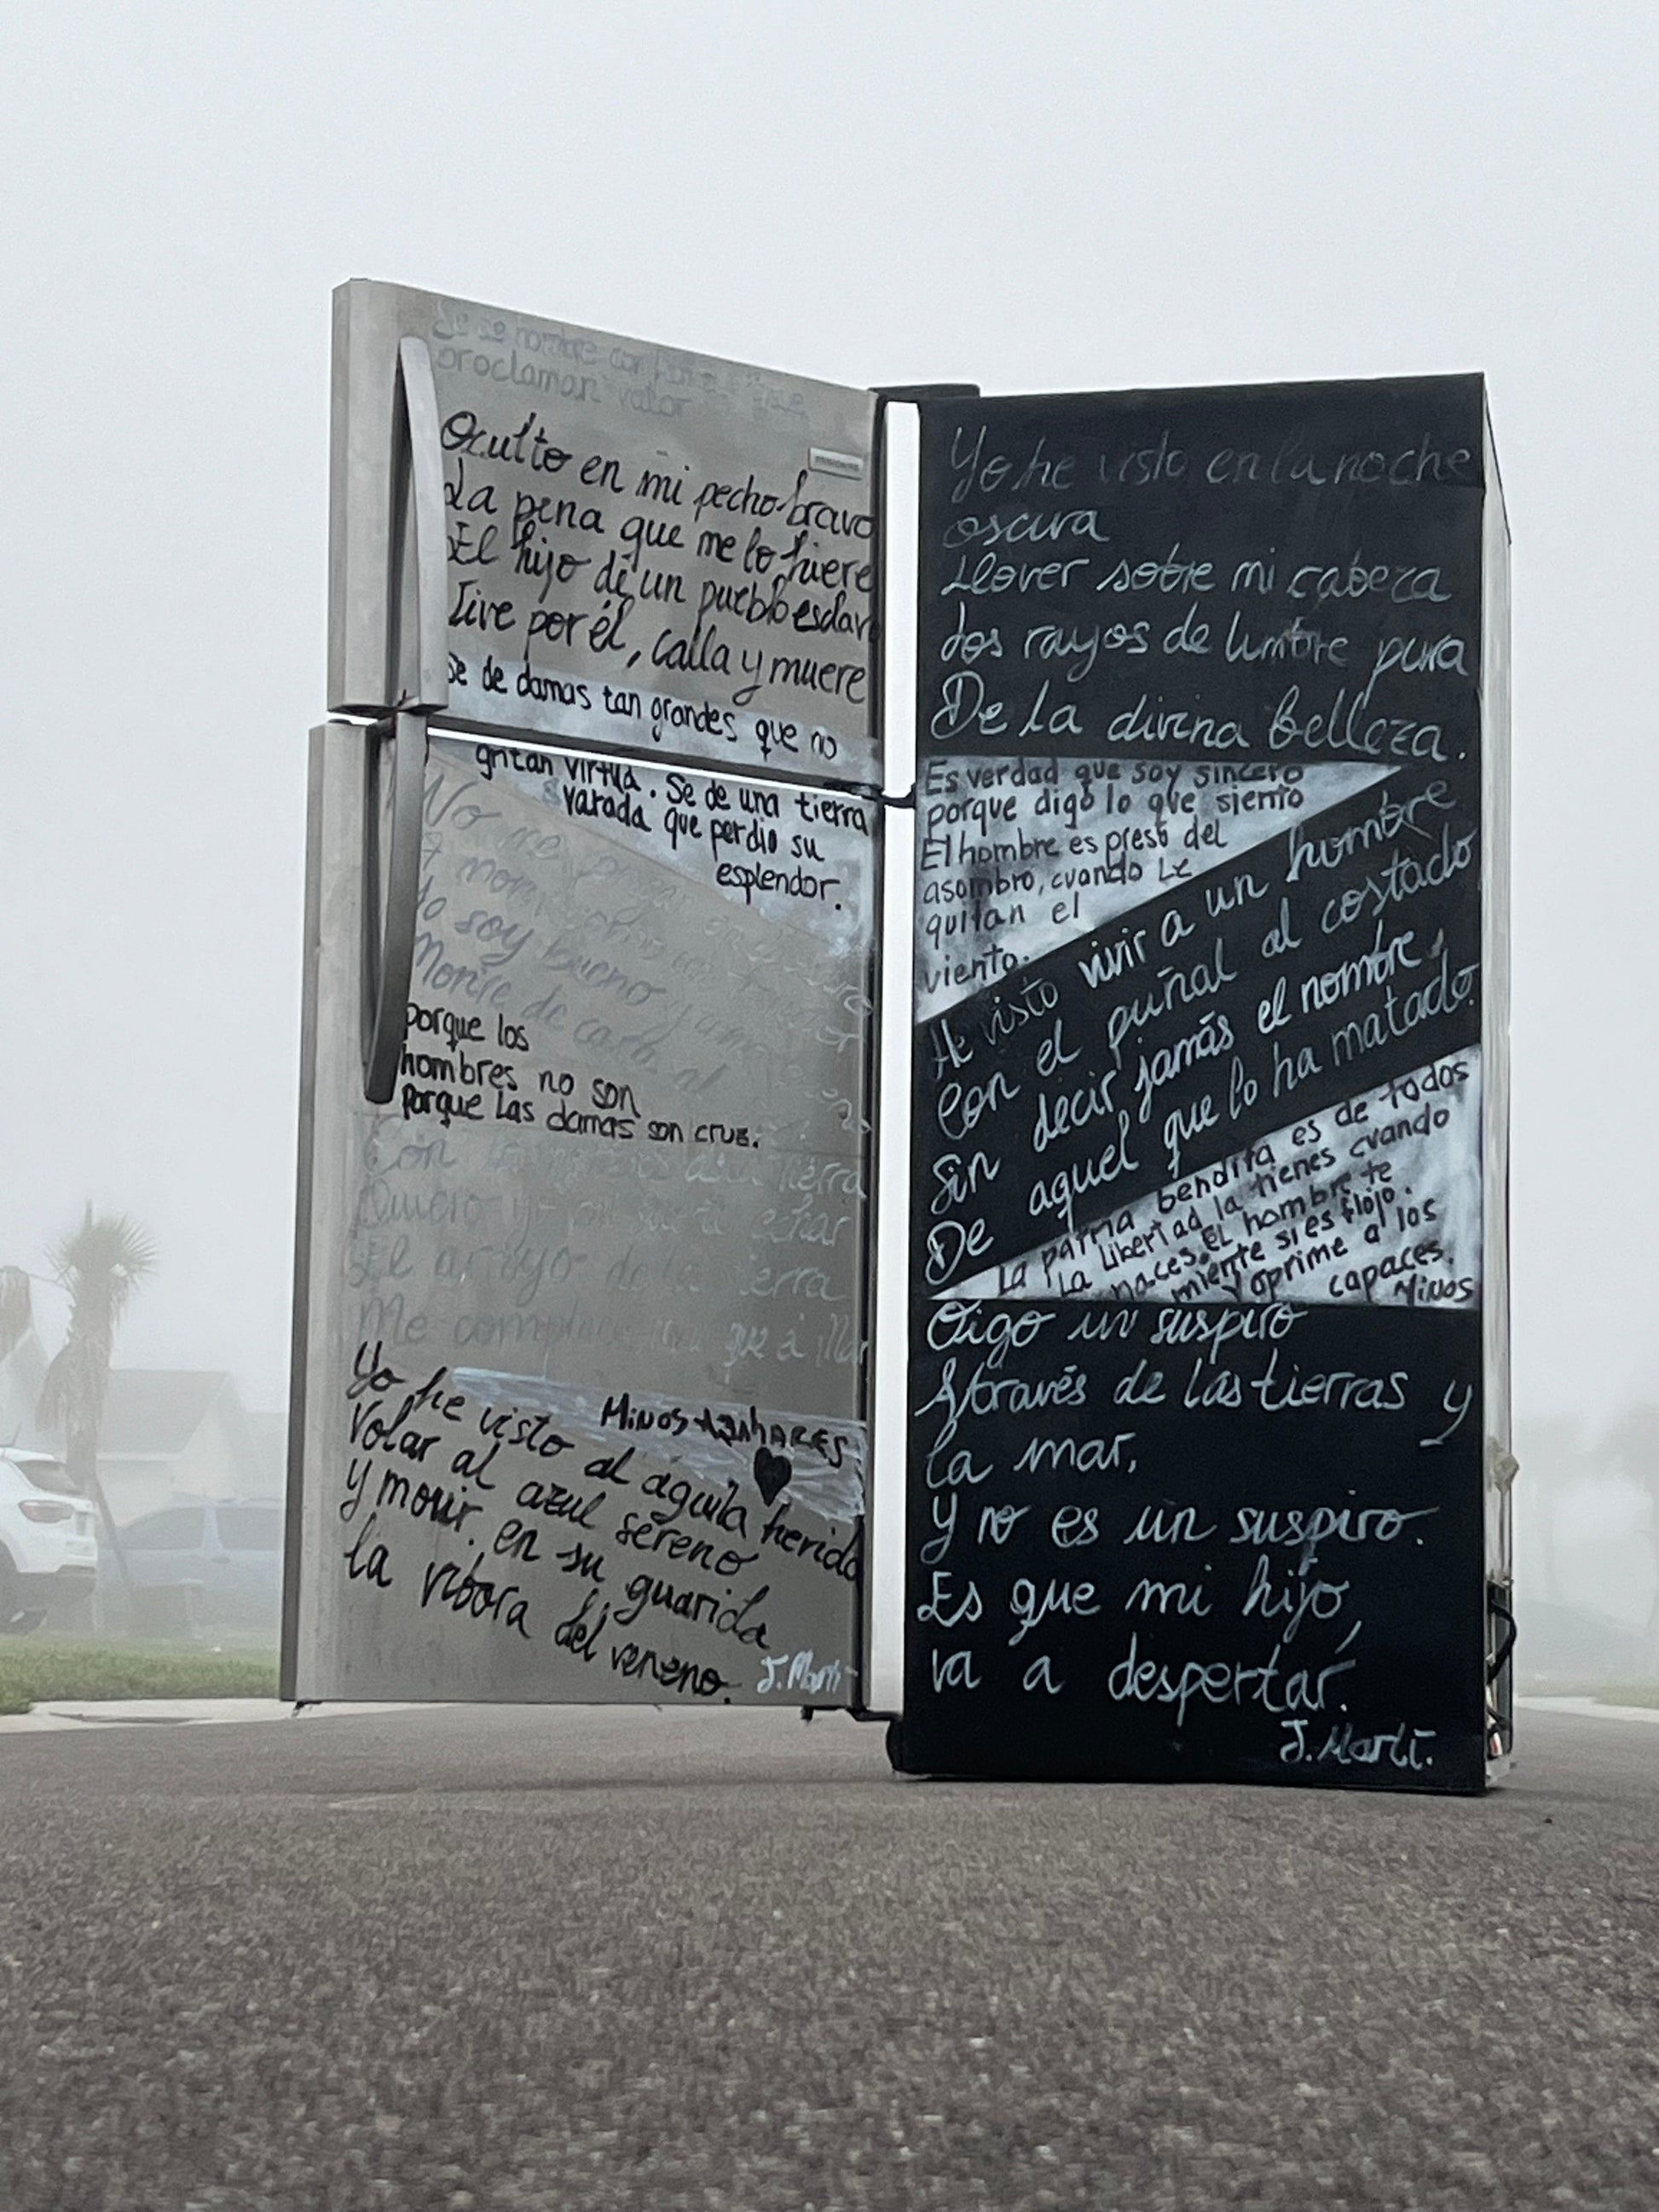 proclaman valor
Oculto en mi pecho bravo
La pena que me lo hiere
El hijo de un pueblo esclav
Vive por él, calla y muere
Se de damas tan grandes que no
gritan virtud. Se de una tierra
varada que perdio su
esplendor.
No me
A
Yo soy bueno
Morire de cara al
porque los
hombres no son
porque las damas son cruz.
Con tierra
Quiero yo mi echar
El arroyo de la ierra
Me complace que a l mar
Yo he visto al águila herida
Minos Azahares
Volar al azul sereno
y morir en su guarida
la vibora del veneno.
J. Marti
Yo he visto en la noche
oscura
Llover sobre mi cabeza
dos rayos de lumbre pura
De la divina belleza.
Es verdad que soy sincero
porque digo lo que siento
El hombre es preso del
asombro, cuando le
quitan el
viento.
He visto vivir a un hombre
Con el puñal al costado
Sin decir jamás el nombre
De aquel que lo ha matado.
La patria bendita es de todos
La libertad la tienes cuando
naces. El hombre te
miente si es flojo.
y oprime a los
capaces.
Minos
Oigo un suspiro
A través de las tierras y
la mar,
Y no es un suspiro.
Es que mi hijo,
va a despertar.
J. Martí.